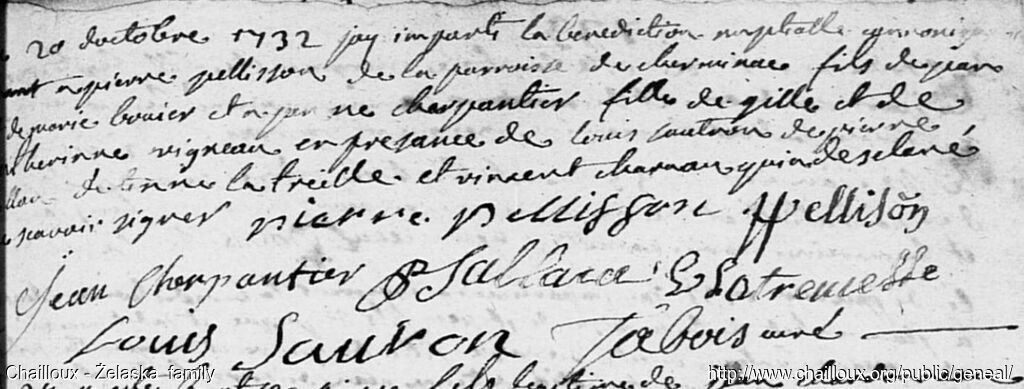 20 doctobre 1732 jay imparti la benediction nuptialle
ant a pierre pellisson de la parroisse de cherminac fils de jean
de marie bouier et a jeanne charpantier fille de gille et de
therinne vigneau en presance de louis sautron de pierre
de tienne la treille et vincent charuau qui on desclaré
scavoir signer pierre pellisson P pellison
Jean Charpantier P Sallaca E Latremesse
Louis Sautron Dabois curé
Chailloux - Żelaska family http://www.chailloux.org/public/geneal/